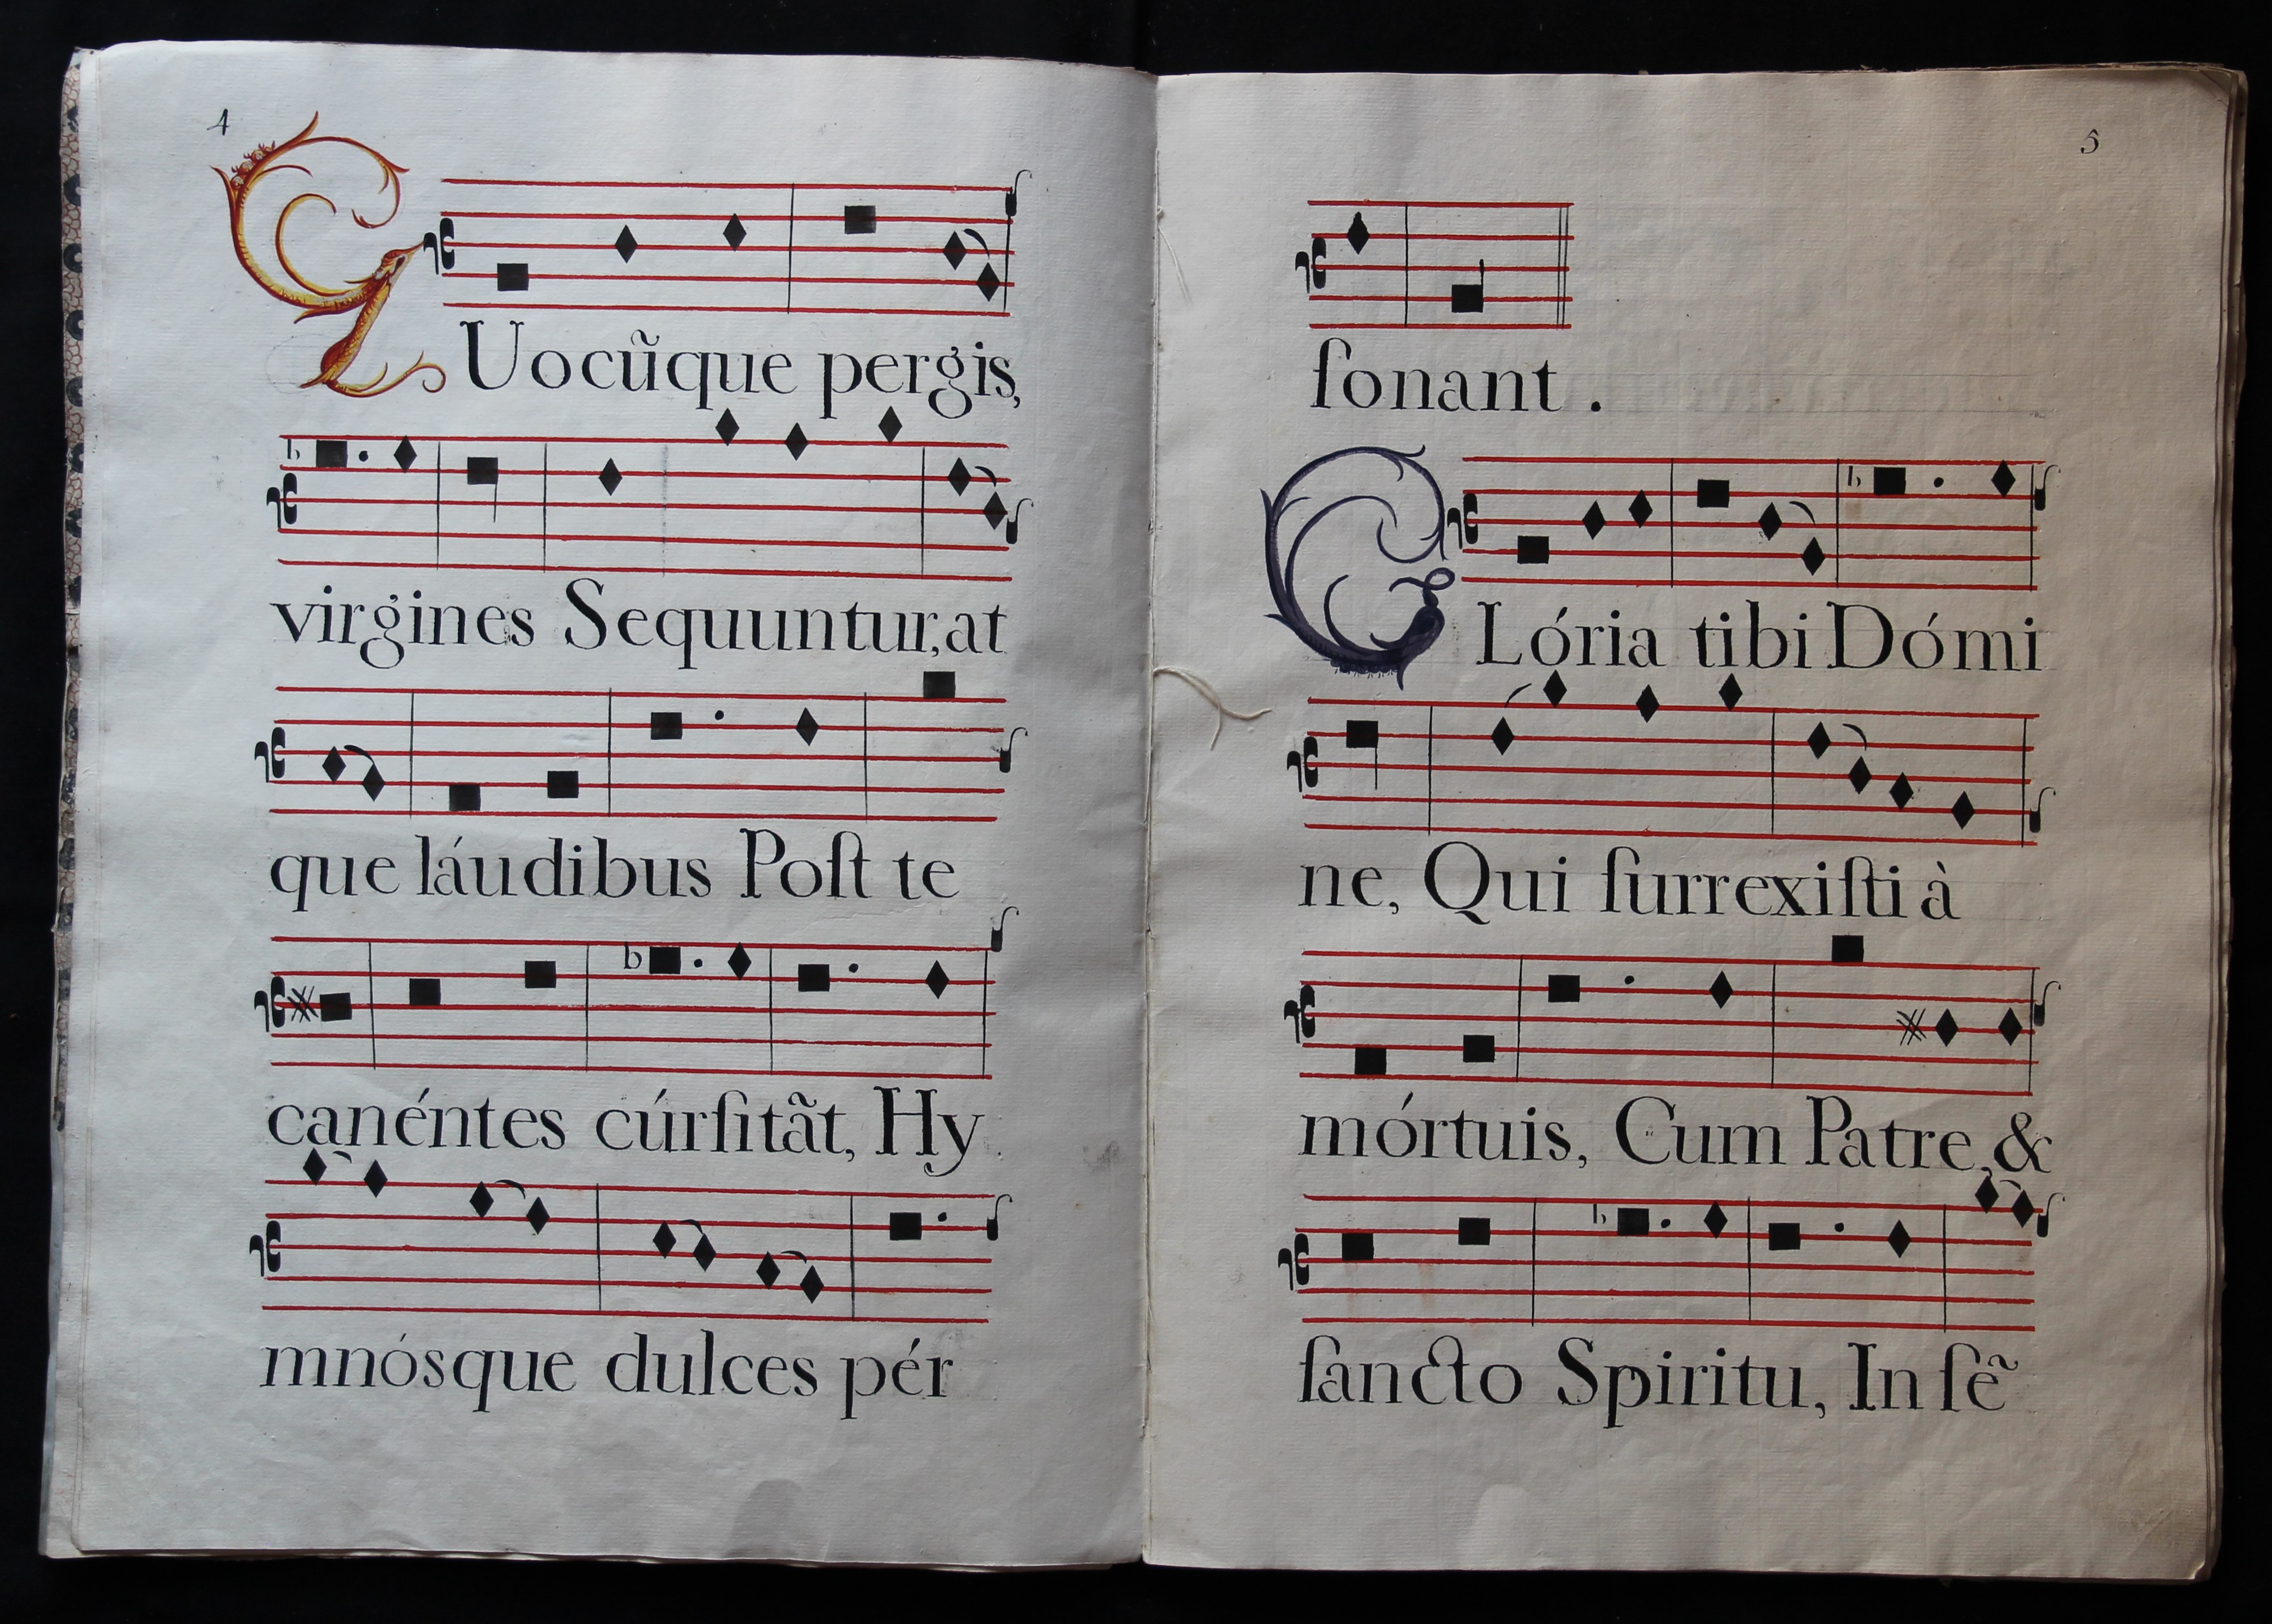 4
QUocũque pergis,
virgines Sequuntur, at
que láudibus Poſt te
canéntes cúrſitãt, Hy
mnósque dulces pér
5
ſonant .
GLória tibi Dómi
ne, Qui ſurrexiſti à
mórtuis, Cum Patre, &
ſancto Spiritu, In ſẽ